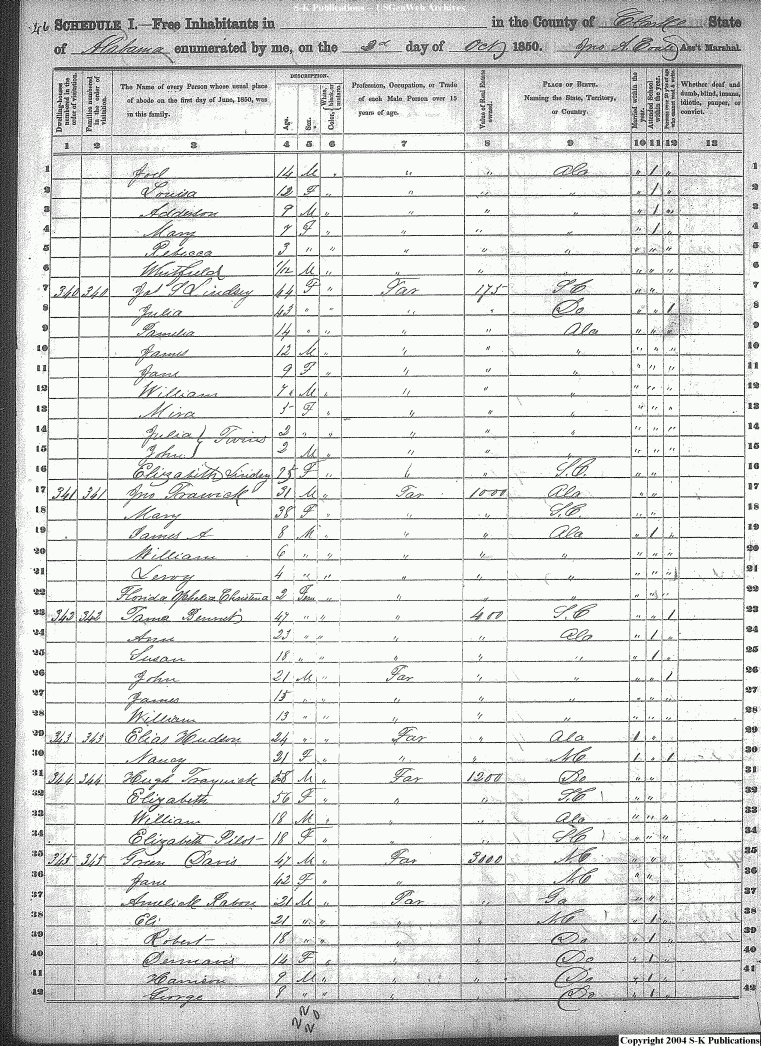 S-K Publications - USGenWeb Archives
46 SCHEDULE I.—Free Inhabitants in in the County of Clarke State
of Alabama enumerated by me, on the 2d day of Oct 1850. Jno A. Coate Ass't Marshal.
Dwelling-houses numbered in the order of visitation.
Families numbered in the order of visitation.
The Name of every Person whose usual place of abode on the first day of June, 1850, was in this family.
DESCRIPTION.
Age.
Sex.
Color, White, black, or mulatto.
Profession, Occupation, or Trade of each Male Person over 15 years of age.
Value of Real Estate owned.
PLACE OF BIRTH. Naming the State, Territory, or Country.
Married within the year.
Attended School within the year.
Persons over 20 y'rs of age who cannot read & write.
Whether deaf and dumb, blind, insane, idiotic, pauper, or convict.
1 2 3 4 5 6 7 8 9 10 11 12 13
1 Joel 14 M " " " Ala " 1 " 1
2 Louisa 12 F " " " " " 1 " 2
3 Adderson 9 M " " " " " 1 " 3
4 Mary 7 F " " " " " 1 " 4
5 Rebecca 3 " " " " " " " " 5
6 Whitfield 1/12 M " " " " " " " 6
7 340 340 Jas S Lindsey 44 F " Far 175 S.C " " 7
8 Julia 43 " " " " Do " " 1 8
9 Pamelia 14 " " " " Ala " " " 9
10 James 12 M " " " " " " " 10
11 Jane 9 F " " " " " " " 11
12 William 7 M " " " " " " " 12
13 Mira 5 F " " " " " " " 13
14 Julia } Twins 2 " " " " " " " " 14
15 John } 2 M " " " " " " " 15
16 Elizabeth Lindsey 75 F " " " S.C. " " 16
17 341 341 Jno Trawick 31 M " Far 1000 Ala " " 17
18 Mary 38 F " " " S.C " " 18
19 James A 8 M " " " Ala " 1 " 19
20 William 6 " " " " " " " " 20
21 Leroy 4 " " " " " " " " 21
22 Florida Ophelia Christina 2 Fem " " " " " " 22
23 342 342 Bennet 47 " " " 400 S.C " " 1 23
24 Ann 23 " " " " Ala " 1 " 24
25 Susan 18 " " " " " " 1 " 25
26 John 21 M " Far " " " " 1 26
27 James 15 " " " " " " " " 27
28 William 13 " " " " " " " " 28
29 343 343 Elias Hudson 24 " " Far " Ala 1 " 29
30 Nancy 21 F " " " N.C 1 " 1 30
31 344 344 Hugh Traywick 58 M " Far 1200 Do " " 31
32 Elizabeth 56 F " " " S.C " " 32
33 William 18 M " " " Ala " " " 33
34 Elizabeth Pilot 18 F " " " S.C " " " 34
35 345 345 Green Davis 47 M " Far 3000 N.C " " 35
36 Jane 42 F " " N.C " " 36
37 Rabon 21 M " Far " Ga " " 37
38 Eli 21 " " " " N.C " 1 " 38
39 Robert 18 " " " " Do " 1 " 39
40 14 F " " " Do " 1 " 40
41 Harrison 9 M " " " Do " 1 " 41
42 George 8 " " " " Do " 1 " 42
22
20
Copyright 2004 S-K Publications